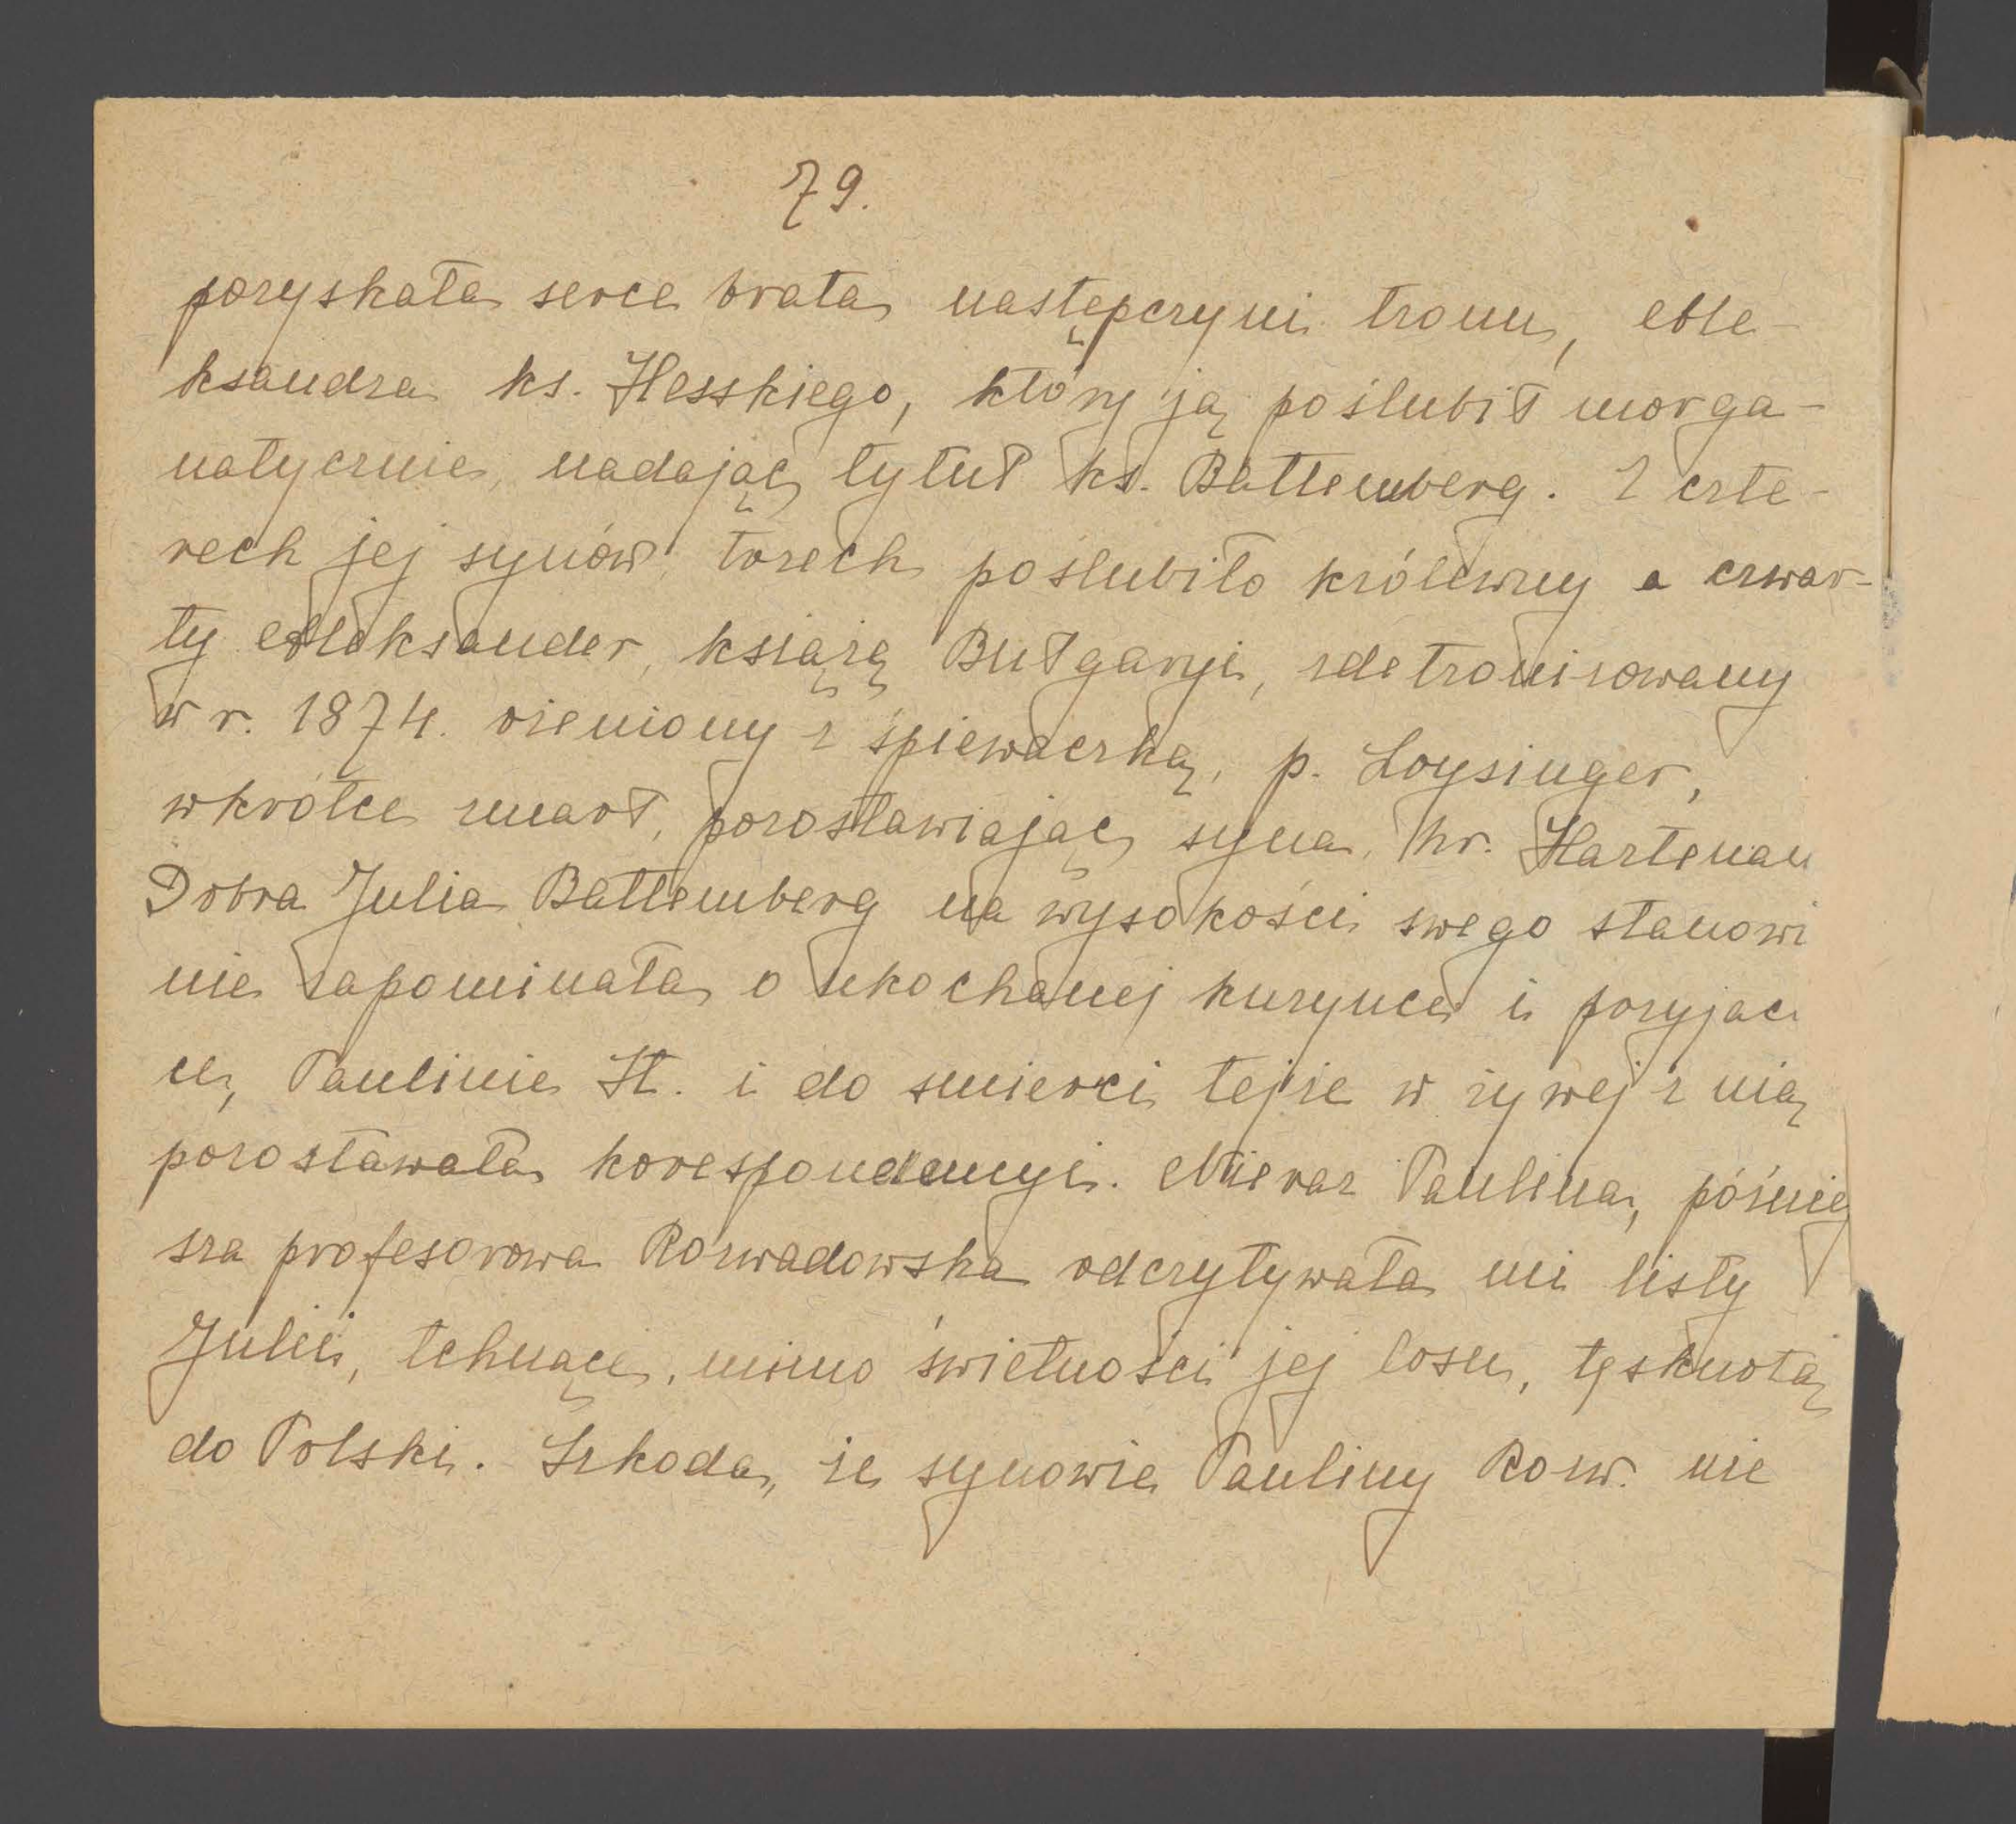 79.
pozyskała serce brata następczyni tronu, Ale-
ksandra ks. Hesskiego, który ją poślubił morga-
natycznie, nadając tytuł ks. Battemberg. Z czte-
rech jej synów, trzech poślubiło królewny a czwar-
ty Aleksander, książę Bułgaryi, zdetronizowany
w r. 1874. ożeniony z śpiewaczką, p. Loysinger,
wkrótce zmarł, pozostawiając syna, hr. Hartenau
Dobra Julia Battemberg na wysokości swego stanowi
nie zapominała o ukochanej kuzynce i przyjaci
ce, Paulinie St. i do śmierci tejże w żywej z nią
pozostawała korespondencyi. Nieraz Paulina, później
sza profesorowa Rozwadowska odczytywała mi listy
Julii, tchnące, mimo świetności jej losu, tęsknotą
do Polski. Szkoda, że synowie Pauliny Rozw. nie